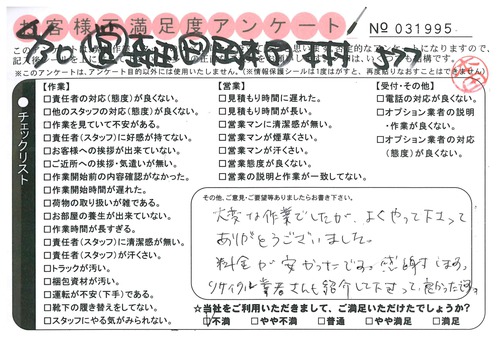 お客様不満足度アンケート
No 031995
※このアンケートは、アンケート目的以外には使用いたしません。(※情報保護シールは1度はがすと、再度貼りなおすことはできません)
チェックリスト
【作業】
□責任者の対応(態度)が良くない。
□他のスタッフの対応(態度)が良くない。
□作業を見ていて不安がある。
□責任者(スタッフ)に好感が持てない。
□お客様への挨拶が出来ていない。
□ご近所への挨拶・気遣いが無い。
□作業開始前の内容確認がなかった。
□作業開始時間が遅れた。
□荷物の取り扱いが雑である。
□お部屋の養生が出来ていない。
□作業時間が長すぎる。
□責任者(スタッフ)に清潔感が無い。
□責任者(スタッフ)が汗くさい。
□トラックが汚い。
□梱包資材が汚い。
□運転が不安(下手)である。
□靴下の履き替えをしてない。
□スタッフにやる気がみられない。
【営業】
□見積もり時間に遅れた。
□見積もり時間が長い。
□営業マンに清潔感が無い。
□営業マンが煙草くさい。
□営業マンが汗くさい。
□営業態度が良くない。
□営業の説明と作業が一致してない。
【受付・その他】
□電話の対応が良くない。
□オプション業者の説明
・作業が良くない。
□オプション業者の対応
(態度)が良くない。
その他、ご意見・ご要望等ありましたらお書き下さい。
大変な作業でしたが、よくやって下さって
ありがとうございました。
料金が安かったです。感謝します。
リサイクル業者さんも紹介して下さって、良かったです。
☆当社をご利用いただきまして、ご満足いただけたでしょうか?
□不満 □やや不満 □普通 □やや満足 □満足